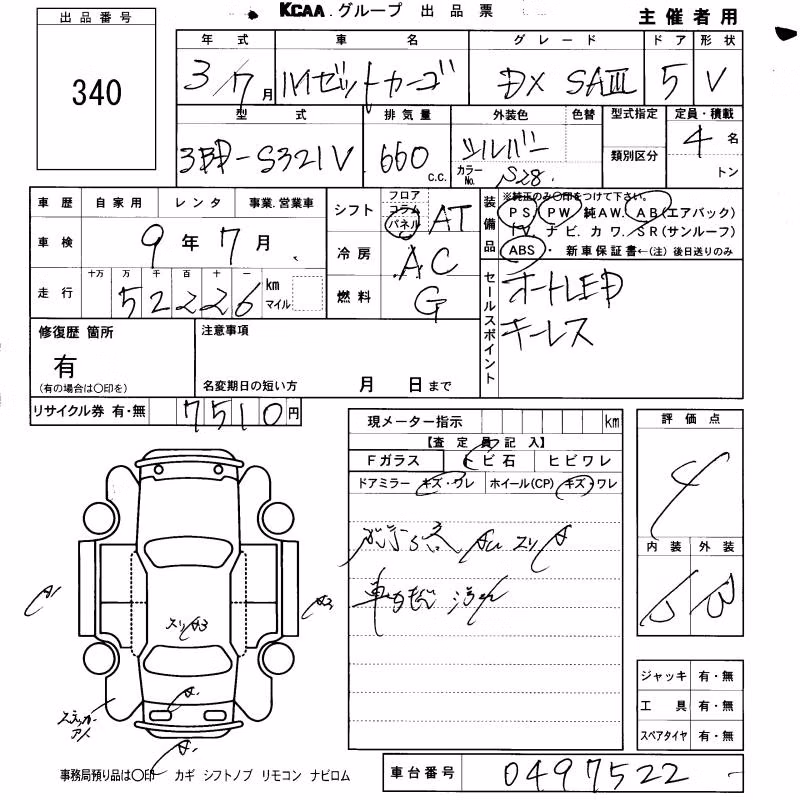 KCAA.グループ 出品票
主催者用
出品番号
340
年式 車名 グレード ドア 形状
3/7月 ハイゼットカーゴ DX SAⅢ 5 V
型式 排気量 外装色 色替 型式指定 定員・積載
3BD-S321V 660 c.c. シルバー カラーNo. S28 類別区分 4名
トン
車歴 自家用 レンタ 事業.営業車
車検 9年7月
走行 十万 万 千 百 十 一
52226 km マイル
シフト フロア コラム パネル AT
冷房 AC
燃料 G
装備品 ※純正のみ○印をつけて下さい。
PS PW 純AW. AB(エアバック)
TV. ナビ. カワ. SR(サンルーフ)
ABS ・ 新車保証書←(注) 後日送りのみ
セールスポイント
オートLED
キーレス
修復歴 箇所
有
(有の場合は○印を)
注意事項
名変期日の短い方 月 日まで
リサイクル券 有・無 7510円
現メーター指示 km
【査定員記入】
Fガラス トビ石 ヒビワレ
ドアミラー キズ・ワレ ホイール(CP) キズ・ワレ
スリ A
車内 汚れ
評価点
4
内装 外装
ジャッキ 有・無
工具 有・無
スペアタイヤ 有・無
A1
A3
スリA3
ステッカー
アト
事務局預り品は○印 カギ シフトノブ リモコン ナビロム
車台番号 0497522